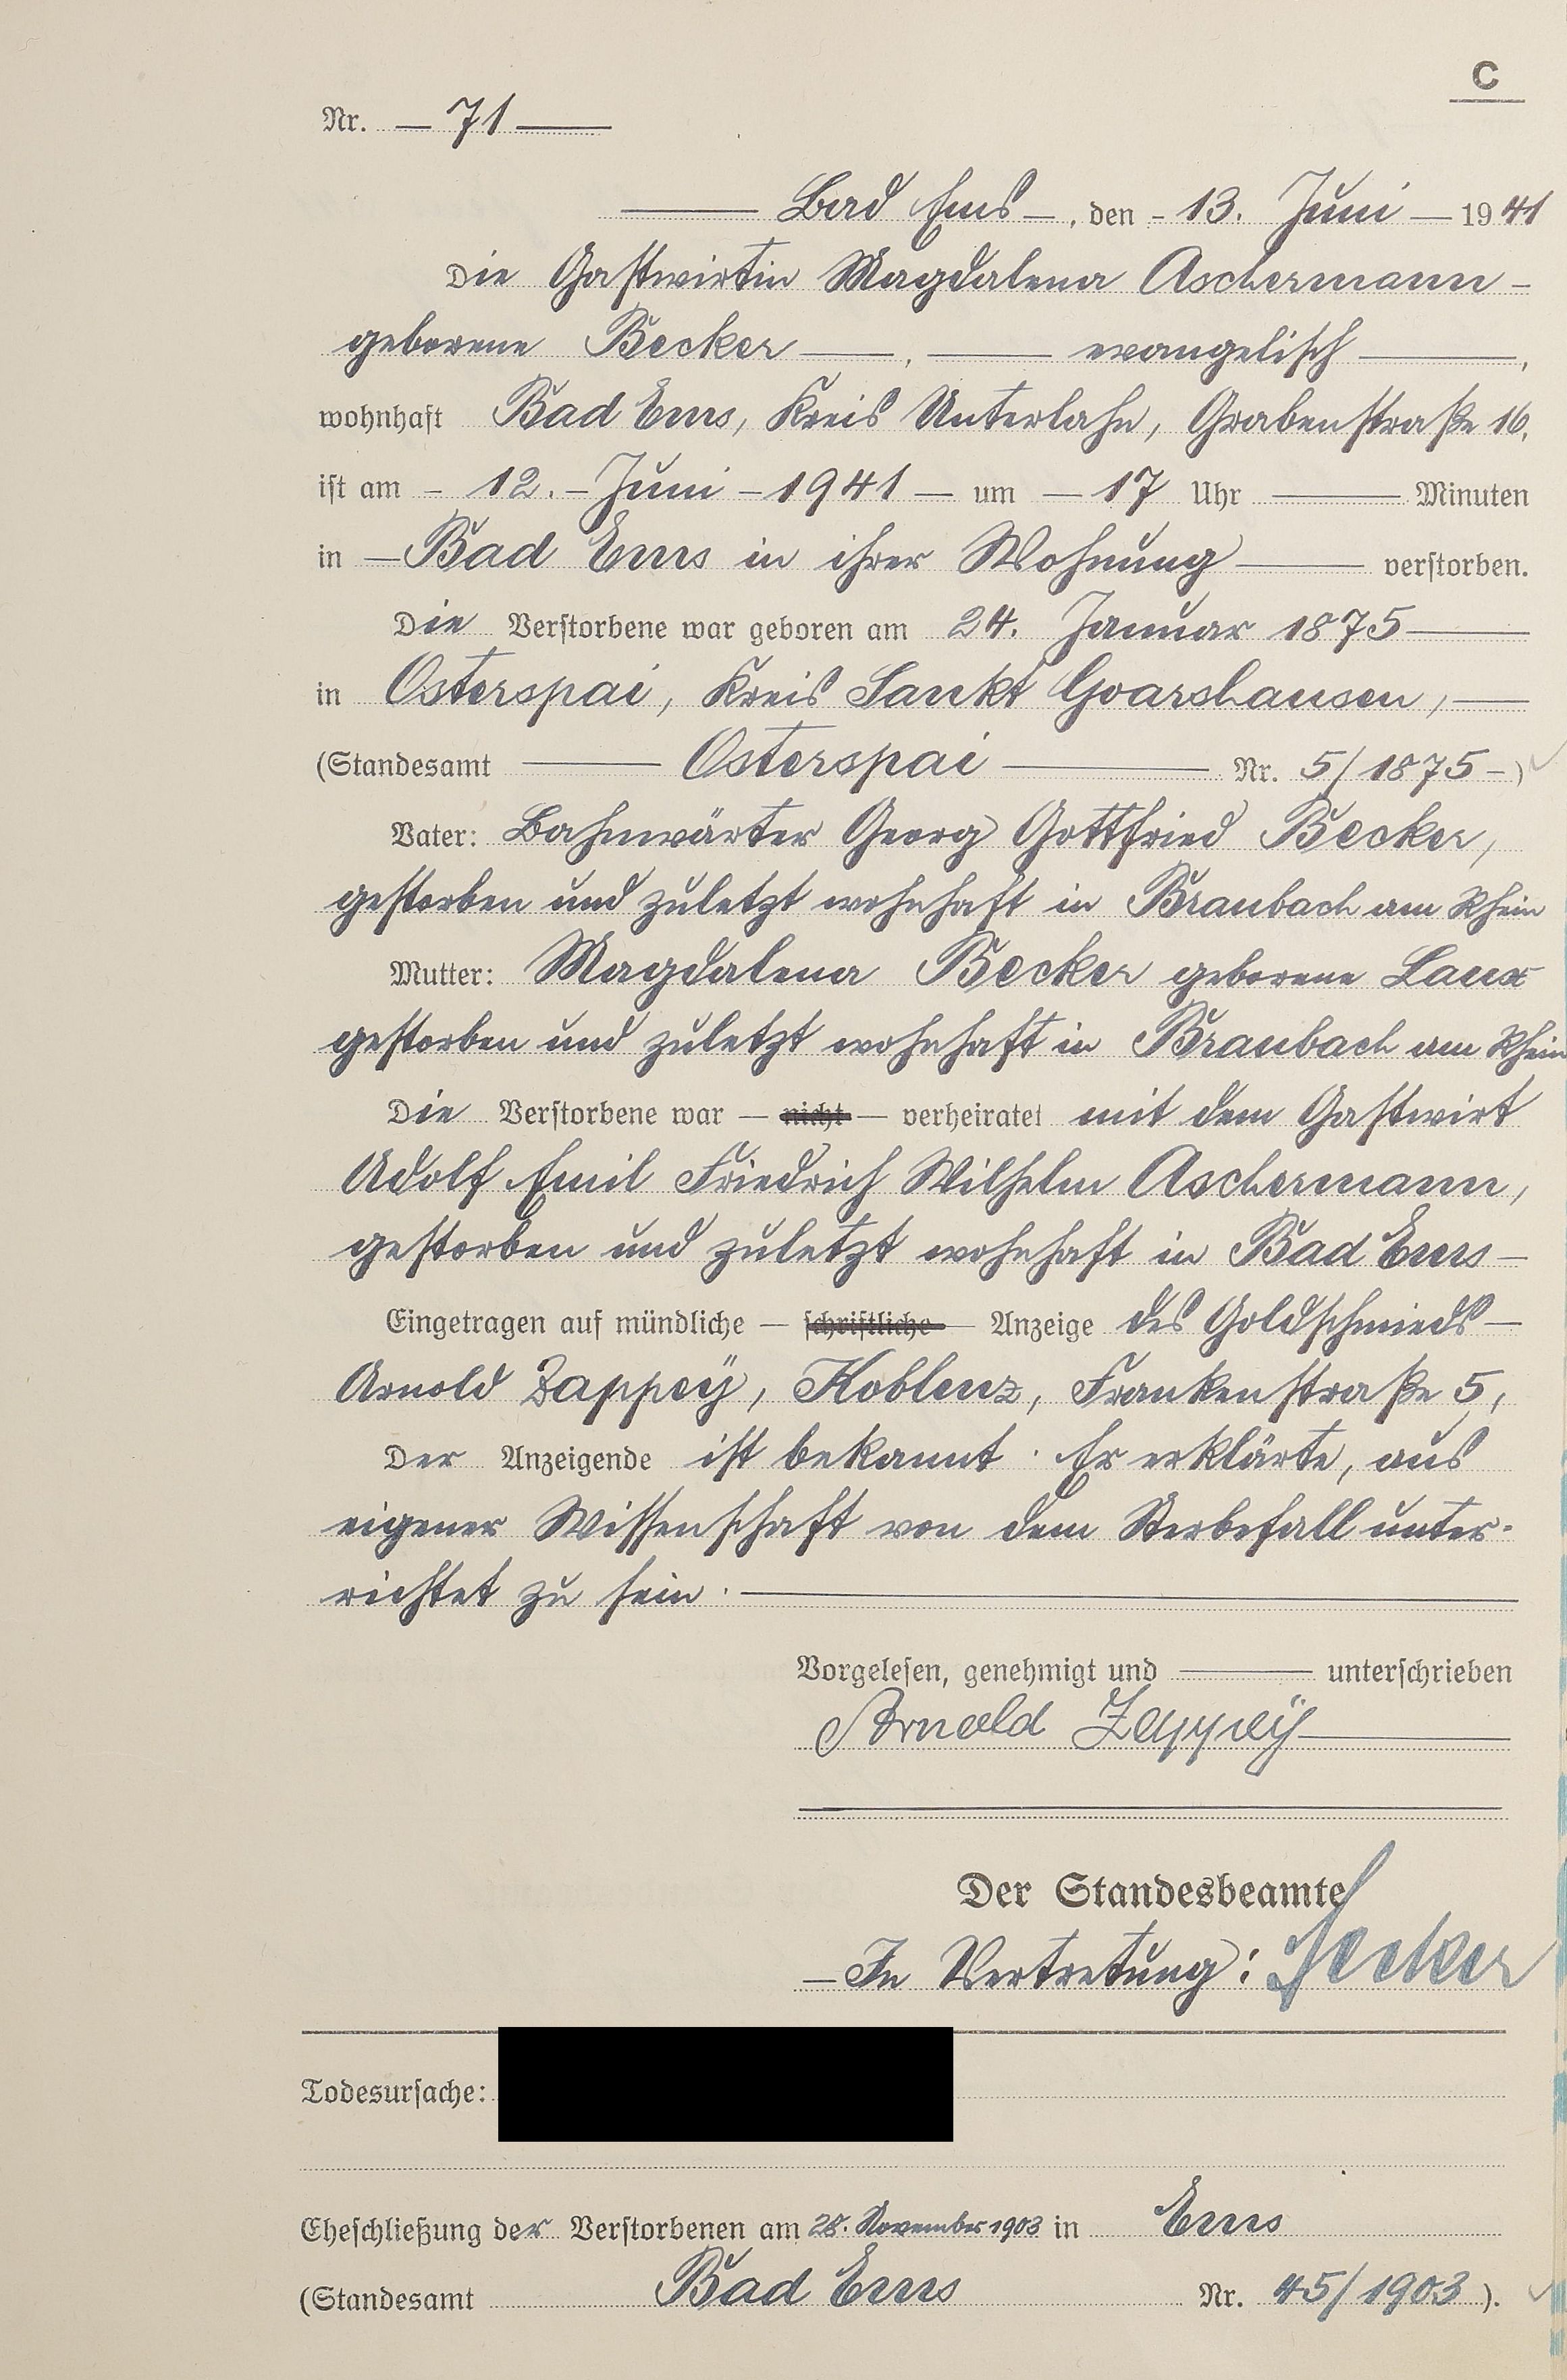 C
Nr. — 71 —
— Bad Ems —, den - 13. Juni — 1941
Die Gastwirtin Magdalena Aschermann -
geborene Becker —, — evangelisch —,
wohnhaft Bad Ems, Kreis Unterlahn, Grabenstraße 16,
ist am - 12. - Juni - 1941 — um — 17 Uhr — Minuten
in — Bad Ems in ihrer Wohnung — verstorben.
Die Verstorbene war geboren am 24. Januar 1875 —
in Osterspai, Kreis Sankt Goarshausen, —
(Standesamt — Osterspai — Nr. 5/1875 -)
Vater: Bahnwärter Georg Gottfried Becker,
gestorben und zuletzt wohnhaft in Braubach am Rhein
Mutter: Magdalena Becker geborene Laux
gestorben und zuletzt wohnhaft in Braubach am Rhein
Die Verstorbene war — nicht — verheiratet mit dem Gastwirt
Adolf Emil Friedrich Wilhelm Aschermann,
gestorben und zuletzt wohnhaft in Bad Ems —
Eingetragen auf mündliche — schriftliche — Anzeige des Goldschmieds —
Arnold Zappeÿ, Koblenz, Frankenstraße 5,
Der Anzeigende ist bekannt. Er erklärte, aus
eigener Wissenschaft von dem Sterbefall unter-
richtet zu sein. —
Vorgelesen, genehmigt und — unterschrieben
Arnold Zappeÿ —
Der Standesbeamte
— In Vertretung:
Todesursache:
Eheschließung der Verstorbenen am 28. November 1903 in Ems
(Standesamt Bad Ems Nr. 45/1903).